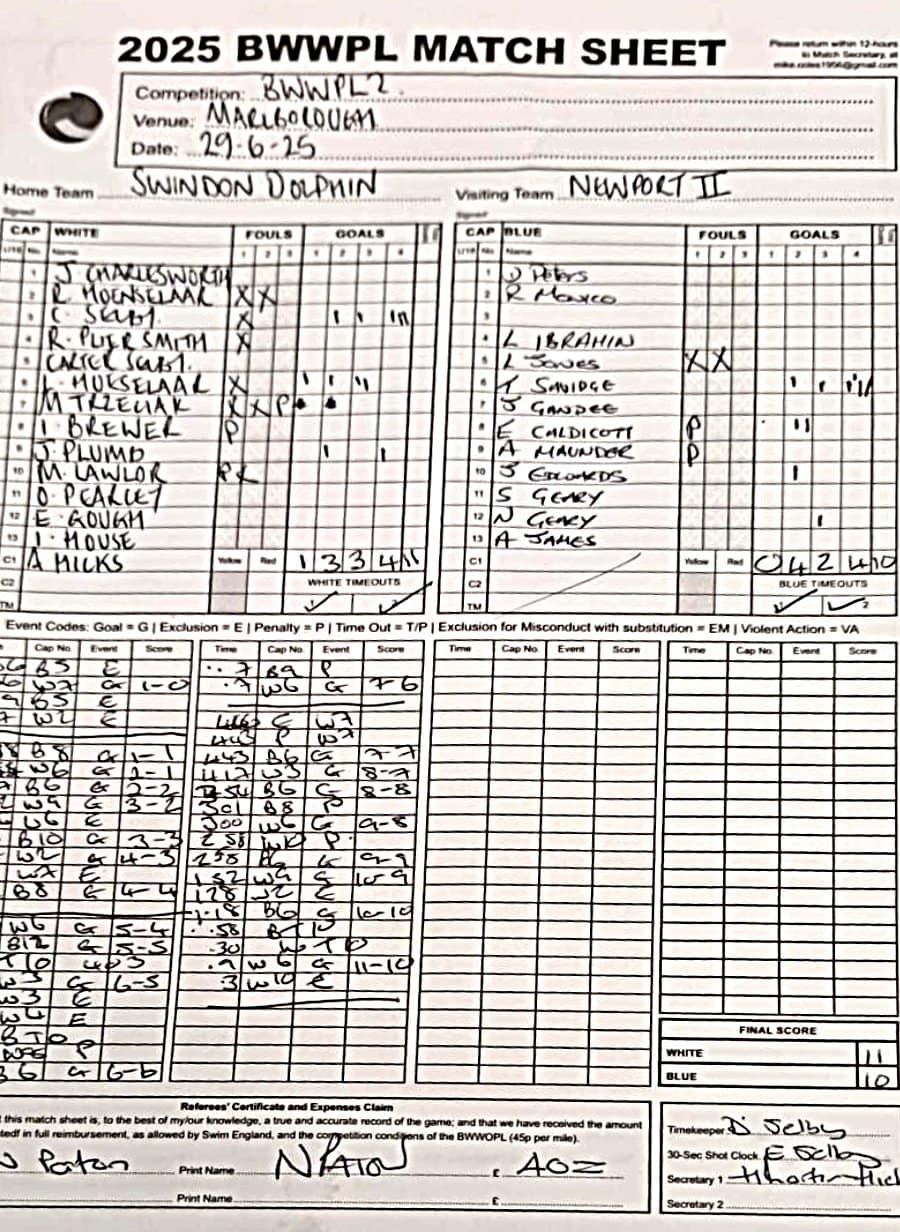 2025 BWWPL MATCH SHEET
Please return within 12-hours
to Match Secretary, at
Competition: BWWPL2.
Venue: MARLBOROUGH
Date: 29-6-25
Home Team SWINDON DOLPHIN Visiting Team NEWPORT II
Signed Signed
CAP WHITE FOULS GOALS CAP BLUE FOULS GOALS
U18 No. Name 1 2 3 1 2 3 4 U18 No. Name 1 2 3 1 2 3 4
1 J CHARLESWORTH 1 D Peters
2 R. MOENSELAAR X X 2 R Mexico
3 C. X 3
4 R. X 4 L IBRAHIN
5 CARTER 5 L Jones X X
6 X 6 T SAVIDGE
7 M TRZECIAK X X P 7 J GANDEE
8 I. BREWER P 8 E CALDICOTT P
9 J. PLUMB 9 A MAUNDER P
10 M. LAWLOR P X 10 J EDWARDS
11 O. PEARCEY 11 S GEARY
12 E. GOUGH 12 N GEARY
13 I. HOUSE 13 A JAMES
C1 A MILKS Yellow Red 1 3 3 4 11 C1 Yellow Red 0 4 2 4 10
C2 WHITE TIMEOUTS C2 BLUE TIMEOUTS
TM TM 2
Event Codes: Goal = G | Exclusion = E | Penalty = P | Time Out = T/P | Exclusion for Misconduct with substitution = EM | Violent Action = VA
Cap No. Event Score Time Cap No. Event Score Time Cap No. Event Score Time Cap No. Event Score
B5 E .7 B9 P
W7 G 1-0 .7 W6 G 7-6
B5 E
W2 E E W7
443 P W7
B8 G 1-1 443 B6 G 7-7
W6 G 2-1 417 W3 G 8-7
B6 G 2-2 B6 G 8-8
W9 G 3-2 301 B8 P
W6 E 300 W6 G 9-8
B10 G 3-3 258 W10 P
W2 G 4-3 258 B6 G 9-9
W7 E 152 W9 G 10-9
B8 E 4-4 128 E
1.18 B6 G 10-10
W6 G 5-4 .58 B T/O
B12 G 5-5 .30 W T O
T/O .9 W6 G 11-10
W3 G 6-5 .3 W10 E
W3 E
W4 E
B T O
P
B6 G 6-6
FINAL SCORE
WHITE 11
BLUE 10
Referees' Certificate and Expenses Claim
this match sheet is, to the best of my/our knowledge, a true and accurate record of the game; and that we have received the amount
in full reimbursement, as allowed by Swim England, and the competition conditions of the BWWOPL (45p per mile).
Paton Print Name N PATON £
Print Name £
Timekeeper D Selby
30-Sec Shot Clock E Selby
Secretary 1
Secretary 2